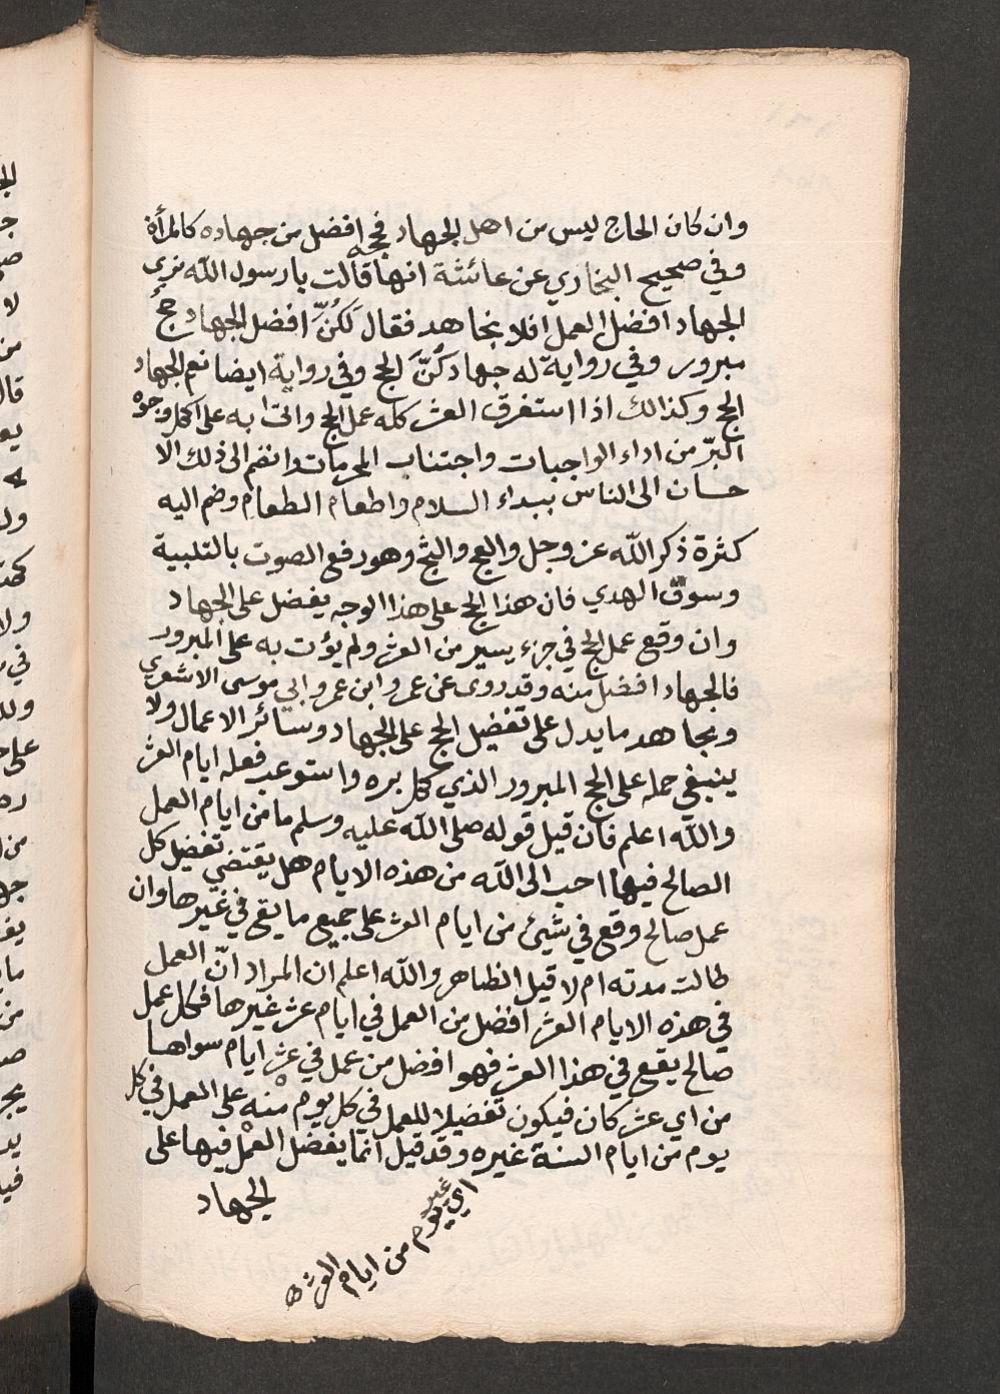 وان كان الحاج ليس من اهل الجهاد فحجه افضل من جهاده كالمرأة
وفي صحيح البخاري عن عائشة انها قالت يا رسول الله نرى
الجهاد افضل العمل افلا نجاهد فقال لَكُنَّ افضل الجهاد حجٌ
مبرور وفي رواية له جهادكُنَّ الحج وفي رواية ايضا نعم الجهاد
الحج وكذالك اذا استغرق العشر كله عمل الحج واتى به على اكمل وجوه
البرّ من اداء الواجبات واجتناب المحرمات وانضم الى ذلك الا
حسان الى الناس ببداء السلام واطعام الطعام وضم اليه
كثرة ذكر الله عز وجل والعج والثج وهو رفع الصوت بالتلبية
وسوق الهدي فان هذا الحج على هذا الوجه يفضل على الجهاد
وان وقع عمل الحج في جزء يسير من العشر ولم يؤت به على المبرور
فالجهاد افضل منه وقد روى عن عمر وابن عمر وابي موسى الاشعري
ومجاهد ما يدل على تفضيل الحج على الجهاد وسائر الاعمال ولا
ينبغي حمله على الحج المبرور الذي كمل بره واستوعب فعله ايام العشر
والله اعلم فان قيل قوله صلى الله عليه وسلم ما من ايام العمل
الصالح فيها احب الى الله من هذه الايام هل يقتضي تفضيل كل
عمل صالح وقع في شيئ من ايام العشر على جميع ما يقع في غيرها وان
طالت مدته ام لا قيل الظاهر والله اعلم ان المراد انّ العمل
في هذه الايام العشر افضل من العمل في ايام عشر غيرها فكل عمل
صالح يقع في هذا العشر فهو افضل من عمل في عشر ايام سواها
من اي عشر كان فيكون تفضيلا للعمل في كل يوم منه على العمل في كل
يوم من ايام السنة غيره وقد قيل انما يفضل العمل فيها على
الجهاد
اي غير
يوم من ايام العشر ه